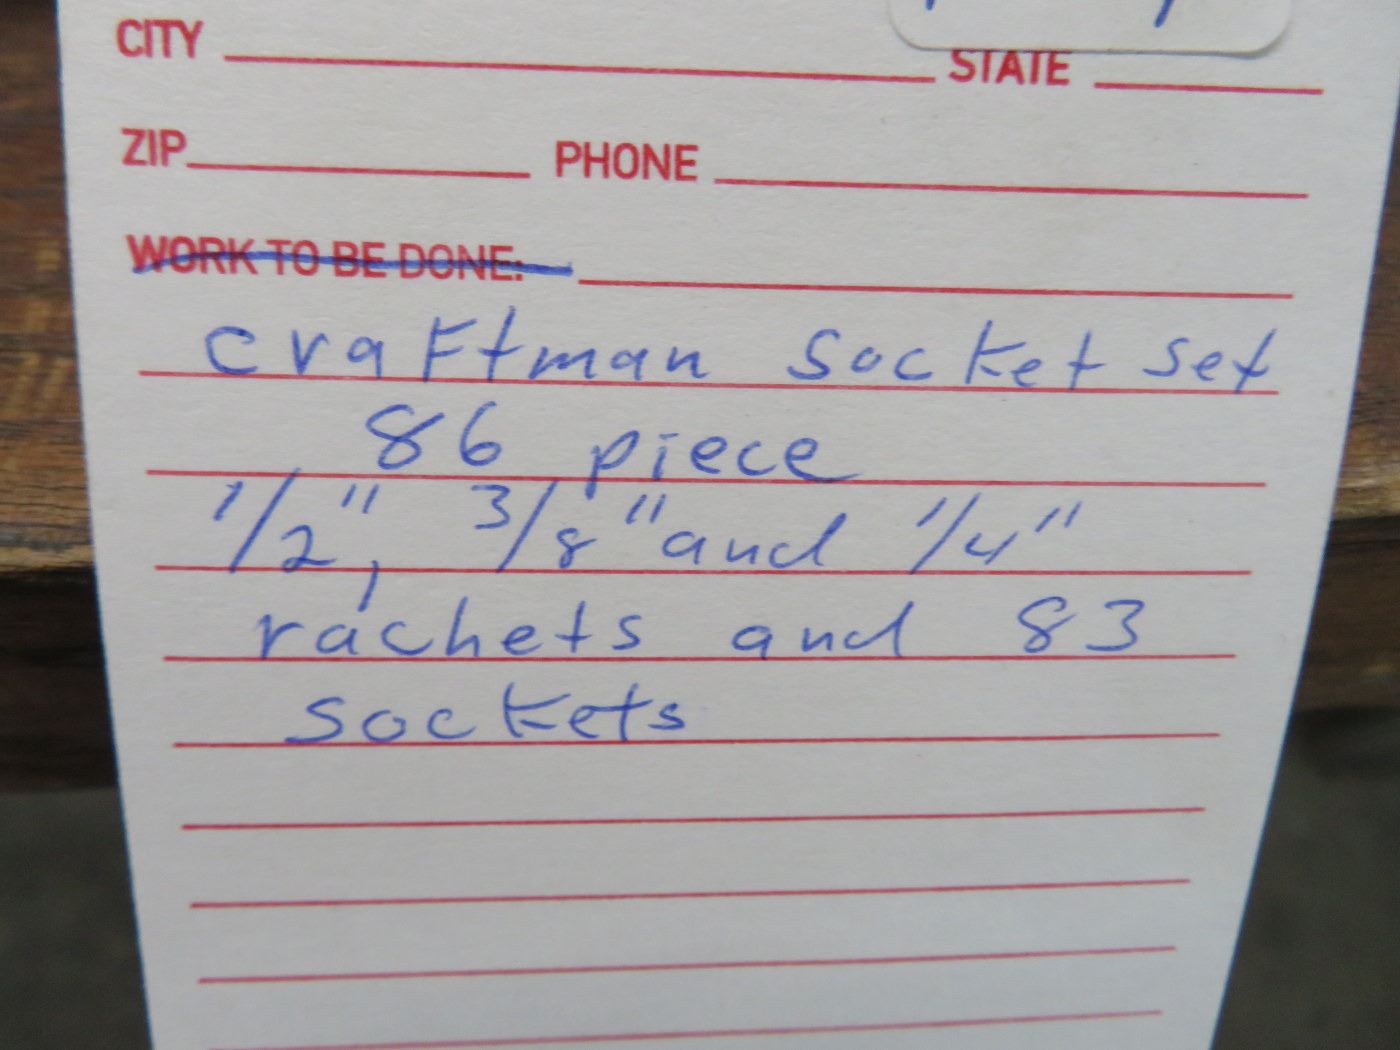 CITY STATE
ZIP PHONE
WORK TO BE DONE:
craftman socket set
86 piece
1/2", 3/8" and 1/4"
rachets and 83
sockets